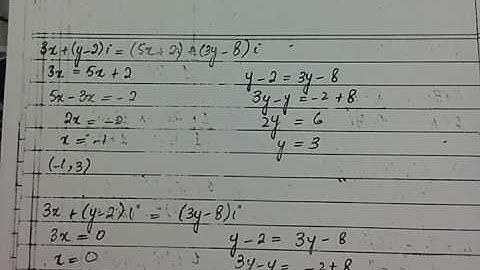 3x+(y-2)i = (5x+2)+(3y-8)i
3x = 5x+2 y-2 = 3y-8
5x-3x = -2 3y-y = -2+8
2x = -2 2y = 6
x = -1 y = 3
(-1,3)
3x+(y-2)i = (3y-8)i
3x = 0 y-2 = 3y-8
x = 0 3y-y = -2+8